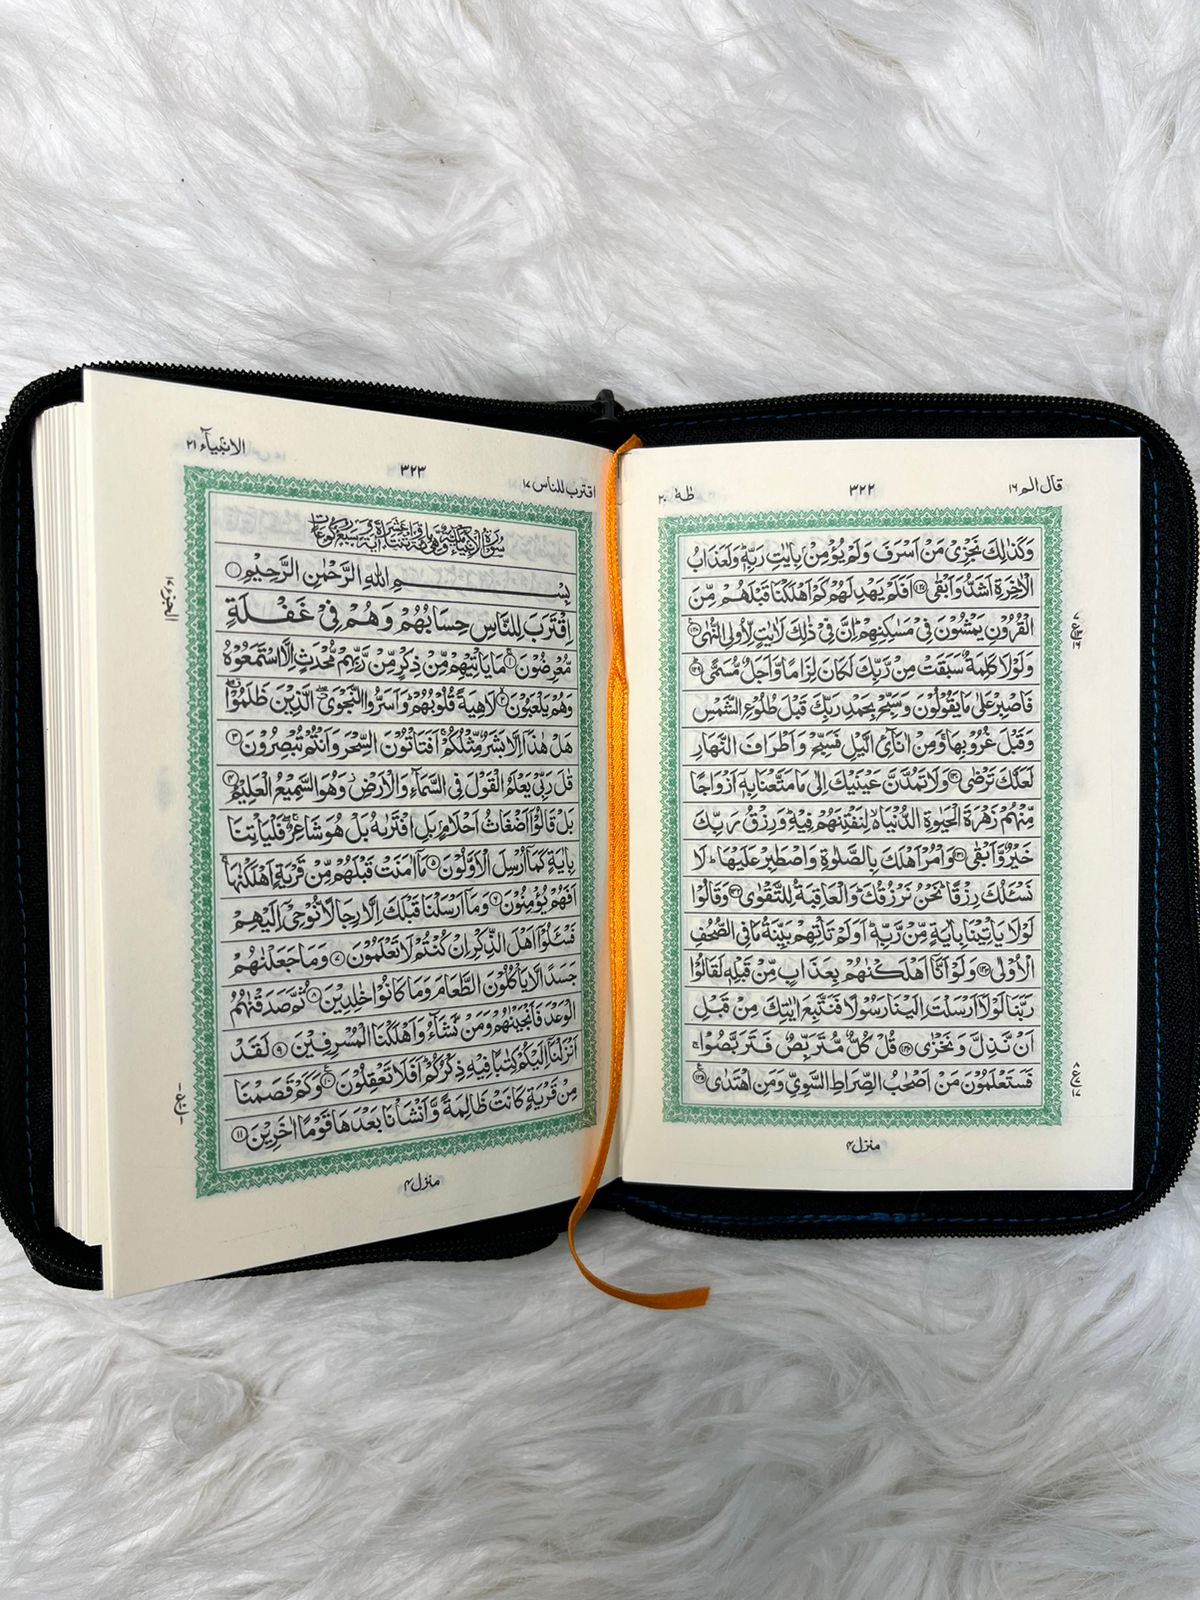 قال الم ١٦
٣٢٢
طٰهٰ ٢٠
وَكَذٰلِكَ نَجْزِيْ مَنْ اَسْرَفَ وَلَمْ يُؤْمِنْۢ بِاٰيٰتِ رَبِّهٖؕ وَلَعَذَابُ
الْاٰخِرَةِ اَشَدُّ وَاَبْقٰى ۝١٢٧ اَفَلَمْ يَهْدِ لَهُمْ كَمْ اَهْلَكْنَا قَبْلَهُمْ مِّنَ
الْقُرُوْنِ يَمْشُوْنَ فِيْ مَسٰكِنِهِمْؕ اِنَّ فِيْ ذٰلِكَ لَاٰيٰتٍ لِّاُولِي النُّهٰى ۝١٢٨
وَلَوْلَا كَلِمَةٌ سَبَقَتْ مِنْ رَّبِّكَ لَكَانَ لِزَامًا وَّاَجَلٌ مُّسَمًّى ۝١٢٩
فَاصْبِرْ عَلٰى مَا يَقُوْلُوْنَ وَسَبِّحْ بِحَمْدِ رَبِّكَ قَبْلَ طُلُوْعِ الشَّمْسِ
وَقَبْلَ غُرُوْبِهَاۚ وَمِنْ اٰنَآئِ الَّيْلِ فَسَبِّحْ وَاَطْرَافَ النَّهَارِ
لَعَلَّكَ تَرْضٰى ۝١٣٠ وَلَا تَمُدَّنَّ عَيْنَيْكَ اِلٰى مَا مَتَّعْنَا بِهٖٓ اَزْوَاجًا
مِّنْهُمْ زَهْرَةَ الْحَيٰوةِ الدُّنْيَا ۙ لِنَفْتِنَهُمْ فِيْهِؕ وَرِزْقُ رَبِّكَ
خَيْرٌ وَّاَبْقٰى ۝١٣١ وَاْمُرْ اَهْلَكَ بِالصَّلٰوةِ وَاصْطَبِرْ عَلَيْهَاؕ لَا
نَسْـَٔلُكَ رِزْقًاؕ نَحْنُ نَرْزُقُكَؕ وَالْعَاقِبَةُ لِلتَّقْوٰى ۝١٣٢ وَقَالُوْا
لَوْلَا يَاْتِيْنَا بِاٰيَةٍ مِّنْ رَّبِّهٖؕ اَوَلَمْ تَاْتِهِمْ بَيِّنَةُ مَا فِي الصُّحُفِ
الْاُوْلٰى ۝١٣٣ وَلَوْ اَنَّاۤ اَهْلَكْنٰهُمْ بِعَذَابٍ مِّنْ قَبْلِهٖ لَقَالُوْا
رَبَّنَا لَوْلَاۤ اَرْسَلْتَ اِلَيْنَا رَسُوْلًا فَنَتَّبِعَ اٰيٰتِكَ مِنْ قَبْلِ
اَنْ نَّذِلَّ وَنَخْزٰى ۝١٣٤ قُلْ كُلٌّ مُّتَرَبِّصٌ فَتَرَبَّصُوْاۚ
فَسَتَعْلَمُوْنَ مَنْ اَصْحٰبُ الصِّرَاطِ السَّوِيِّ وَمَنِ اهْتَدٰى ۝١٣٥
منزل ۴
اقترب للناس ١٧
٣٢٣
الانبيآء ٢١
بِسْمِ اللهِ الرَّحْمٰنِ الرَّحِيْمِ
اِقْتَرَبَ لِلنَّاسِ حِسَابُهُمْ وَهُمْ فِيْ غَفْلَةٍ
مُّعْرِضُوْنَ ۝١ مَا يَاْتِيْهِمْ مِّنْ ذِكْرٍ مِّنْ رَّبِّهِمْ مُّحْدَثٍ اِلَّا اسْتَمَعُوْهُ
وَهُمْ يَلْعَبُوْنَ ۝٢ لَاهِيَةً قُلُوْبُهُمْؕ وَاَسَرُّوا النَّجْوَى ۖ الَّذِيْنَ ظَلَمُوْا ۖ
هَلْ هٰذَاۤ اِلَّا بَشَرٌ مِّثْلُكُمْۚ اَفَتَاْتُوْنَ السِّحْرَ وَاَنْتُمْ تُبْصِرُوْنَ ۝٣
قٰلَ رَبِّيْ يَعْلَمُ الْقَوْلَ فِي السَّمَآءِ وَالْاَرْضِ ؗ وَهُوَ السَّمِيْعُ الْعَلِيْمُ ۝٤
بَلْ قَالُوْۤا اَضْغَاثُ اَحْلَامٍۭ بَلِ افْتَرٰىهُ بَلْ هُوَ شَاعِرٌ ۖۚ فَلْيَاْتِنَا
بِاٰيَةٍ كَمَاۤ اُرْسِلَ الْاَوَّلُوْنَ ۝٥ مَاۤ اٰمَنَتْ قَبْلَهُمْ مِّنْ قَرْيَةٍ اَهْلَكْنٰهَاۚ
اَفَهُمْ يُؤْمِنُوْنَ ۝٦ وَمَاۤ اَرْسَلْنَا قَبْلَكَ اِلَّا رِجَالًا نُّوْحِيْۤ اِلَيْهِمْ
فَسْـَٔلُوْۤا اَهْلَ الذِّكْرِ اِنْ كُنْتُمْ لَا تَعْلَمُوْنَ ۝٧ وَمَا جَعَلْنٰهُمْ
جَسَدًا لَّا يَاْكُلُوْنَ الطَّعَامَ وَمَا كَانُوْا خٰلِدِيْنَ ۝٨ ثُمَّ صَدَقْنٰهُمُ
الْوَعْدَ فَاَنْجَيْنٰهُمْ وَمَنْ نَّشَآءُ وَاَهْلَكْنَا الْمُسْرِفِيْنَ ۝٩ لَقَدْ
اَنْزَلْنَاۤ اِلَيْكُمْ كِتٰبًا فِيْهِ ذِكْرُكُمْؕ اَفَلَا تَعْقِلُوْنَ ۝١٠ وَكَمْ قَصَمْنَا
مِنْ قَرْيَةٍ كَانَتْ ظَالِمَةً وَّاَنْشَاْنَا بَعْدَهَا قَوْمًا اٰخَرِيْنَ ۝١١
منزل ۴